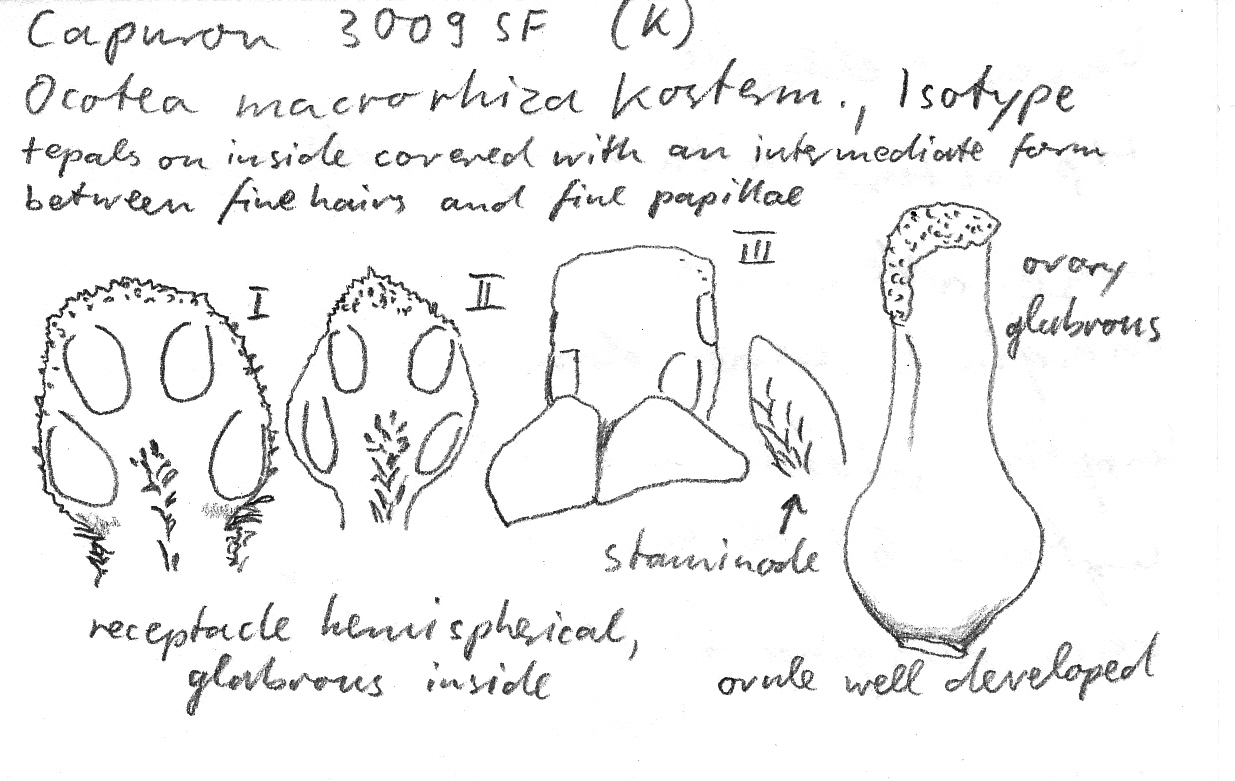 Capuron 3009 SF (K)
Ocotea macrorhiza Kosterm., Isotype
tepals on inside covered with an intermediate form
between fine hairs and fine papillae
I
II
III
ovary
glabrous
staminode
receptacle hemispherical,
glabrous inside
ovule well developed